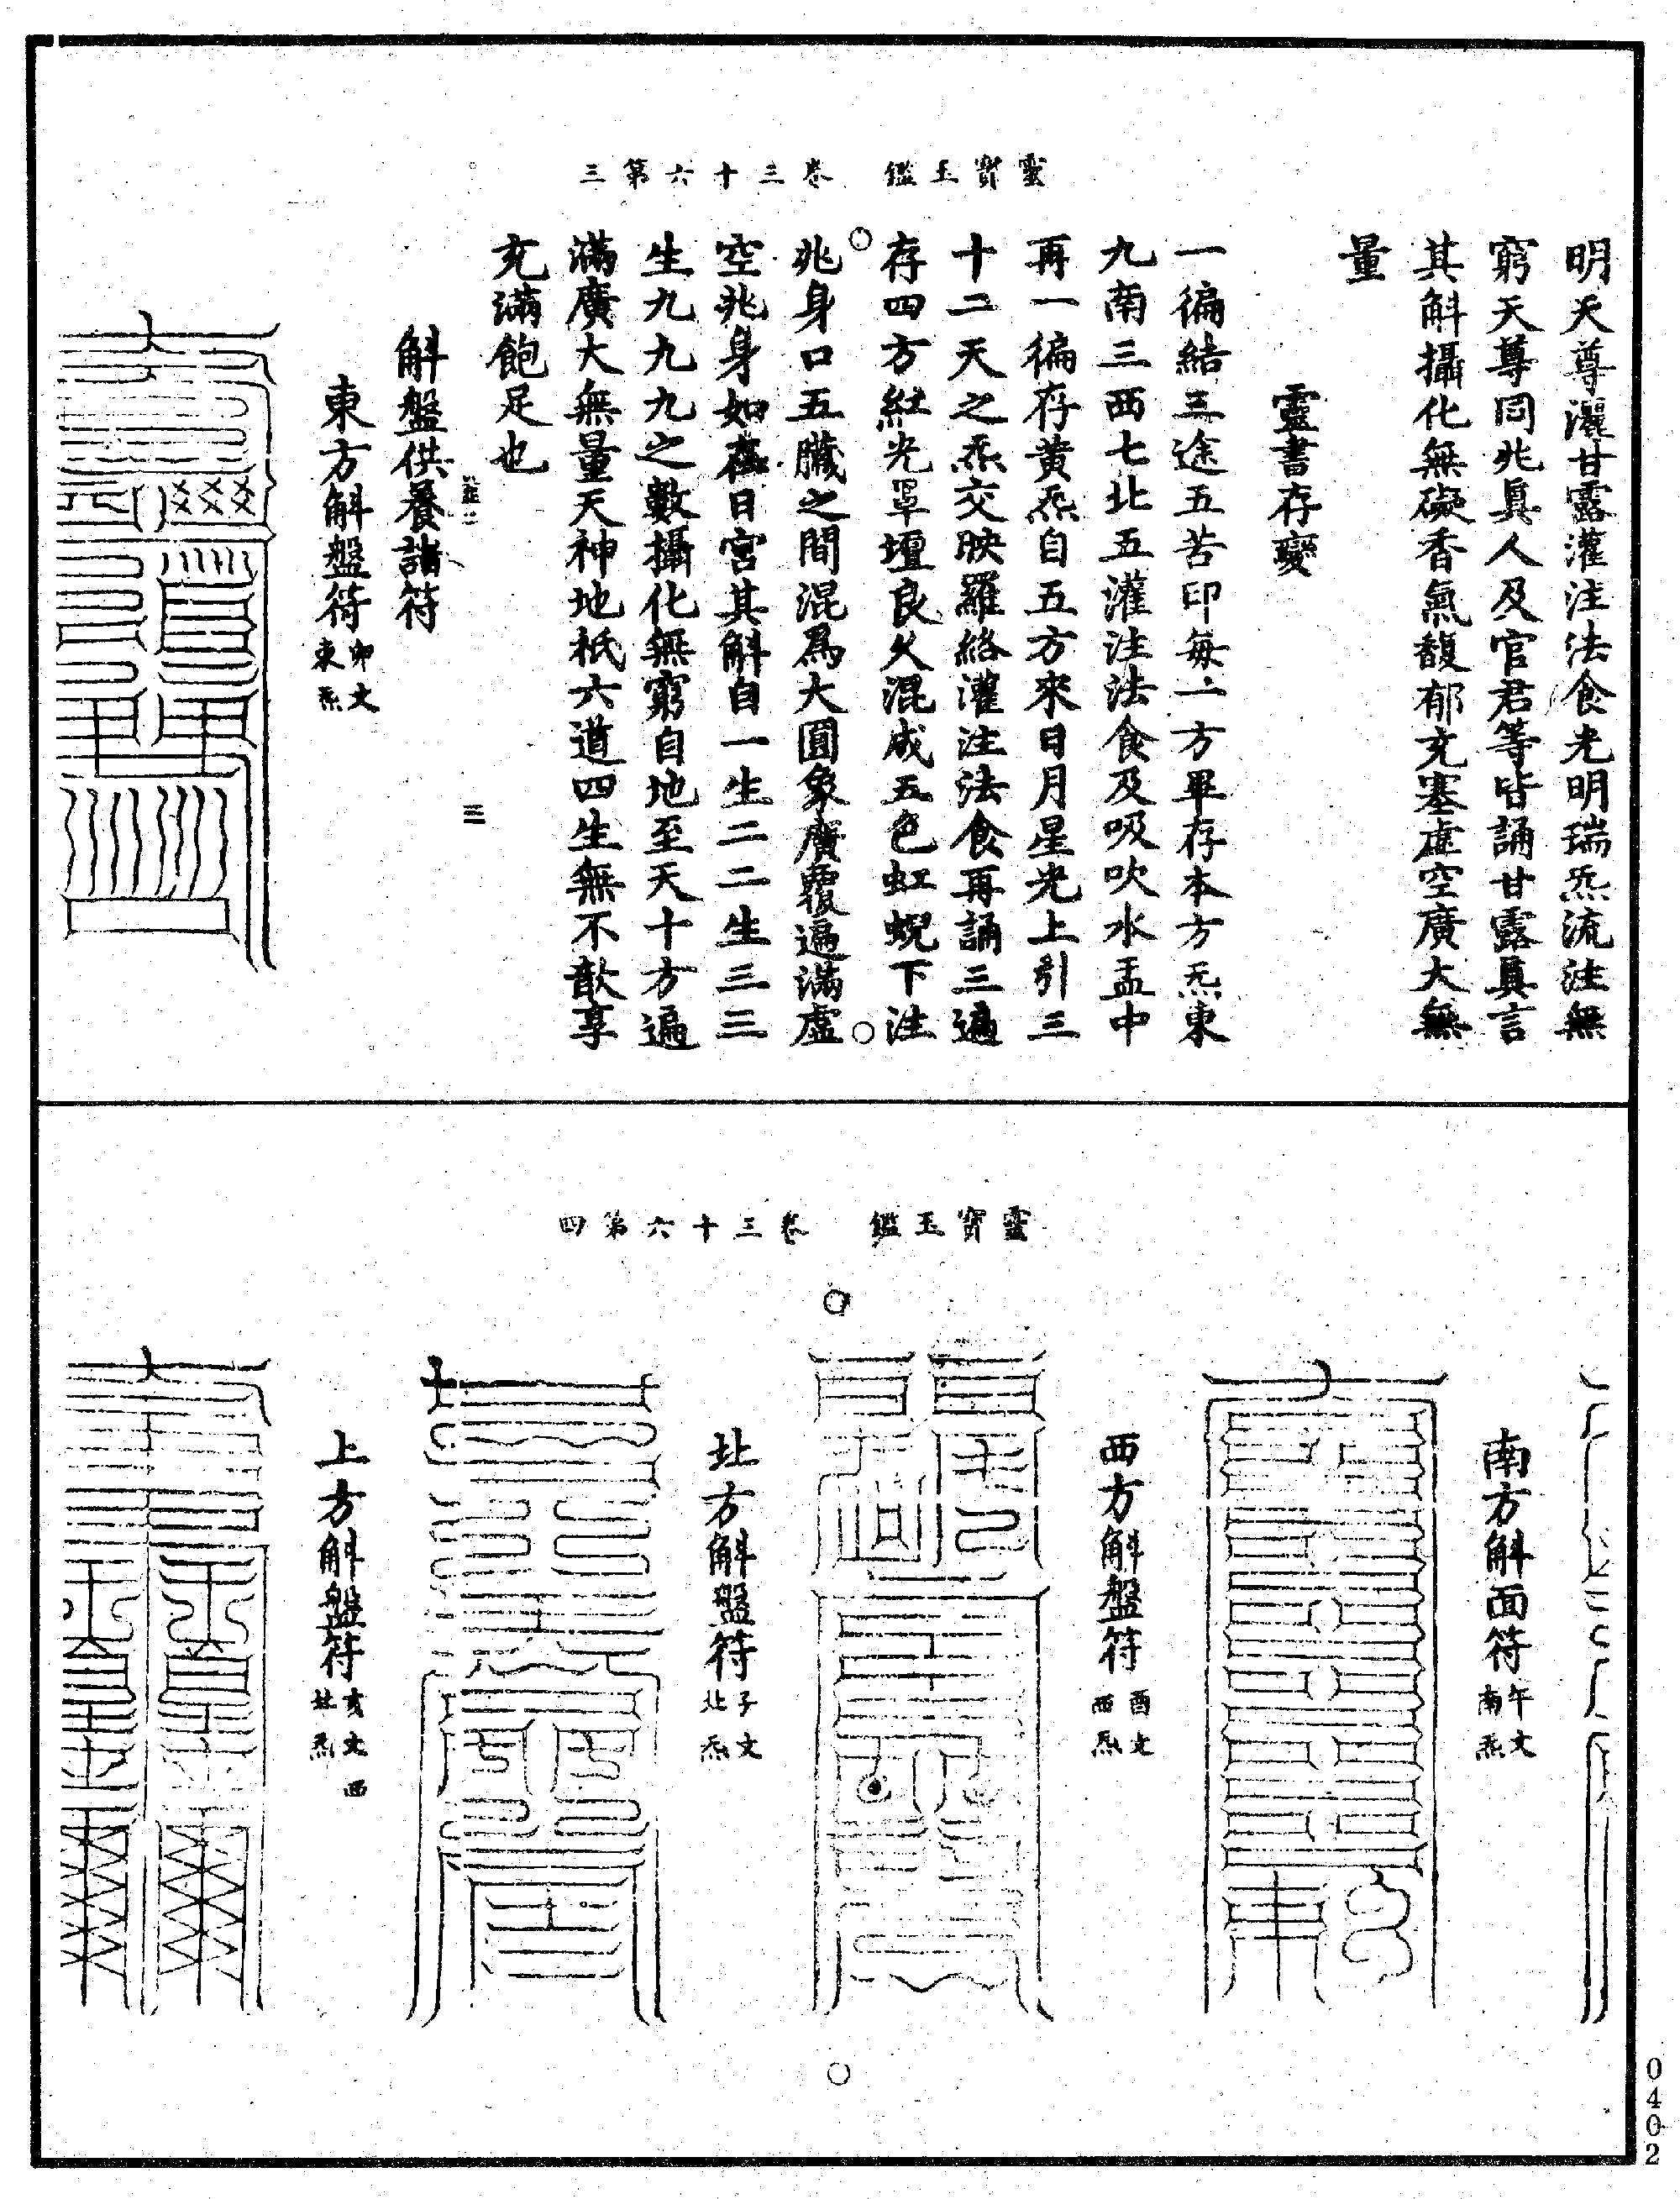 靈寶玉鑑　卷三十六第三
明天尊灑甘露灌注法食光明瑞炁流注無
窮天尊同兆眞人及官君等皆誦甘露眞言
其斛攝化無礙香氣馥郁充塞虛空廣大無
量
靈書存變
一徧結三途五苦印每一方畢存本方炁東
九南三西七北五灌注法食及吸吹水盂中
再一徧存黃炁自五方來日月星光上引三
十二天之炁交映羅絡灌注法食再誦三遍
存四方紅光罩壇良久混成五色虹蜺下注
兆身口五臟之間混爲大圓象廣覆遍滿虛
空兆身如在日宮其斛自一生二二生三三
生九九九之數攝化無窮自地至天十方遍
滿廣大無量天神地祇六道四生無不歆享
充滿飽足也
三
斛盤供養諸符
東方斛盤符 卯文東炁
靈寶玉鑑　卷三十六第四
南方斛面符 午文南炁
西方斛盤符 酉文西炁
北方斛盤符 子文北炁
上方斛盤符 亥文西北炁
0402